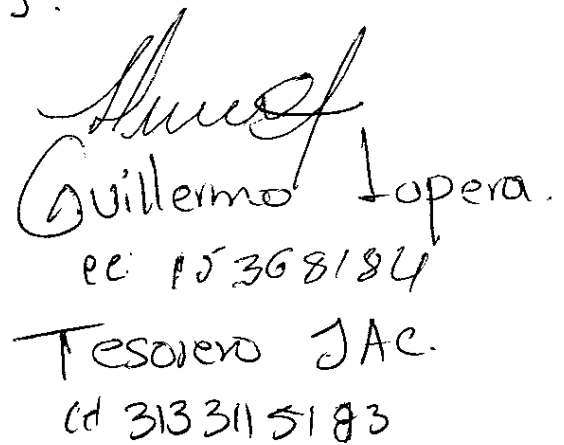 Guillermo Lopera.
cc: 15368184
Tesorero JAC.
Cel 3133115183